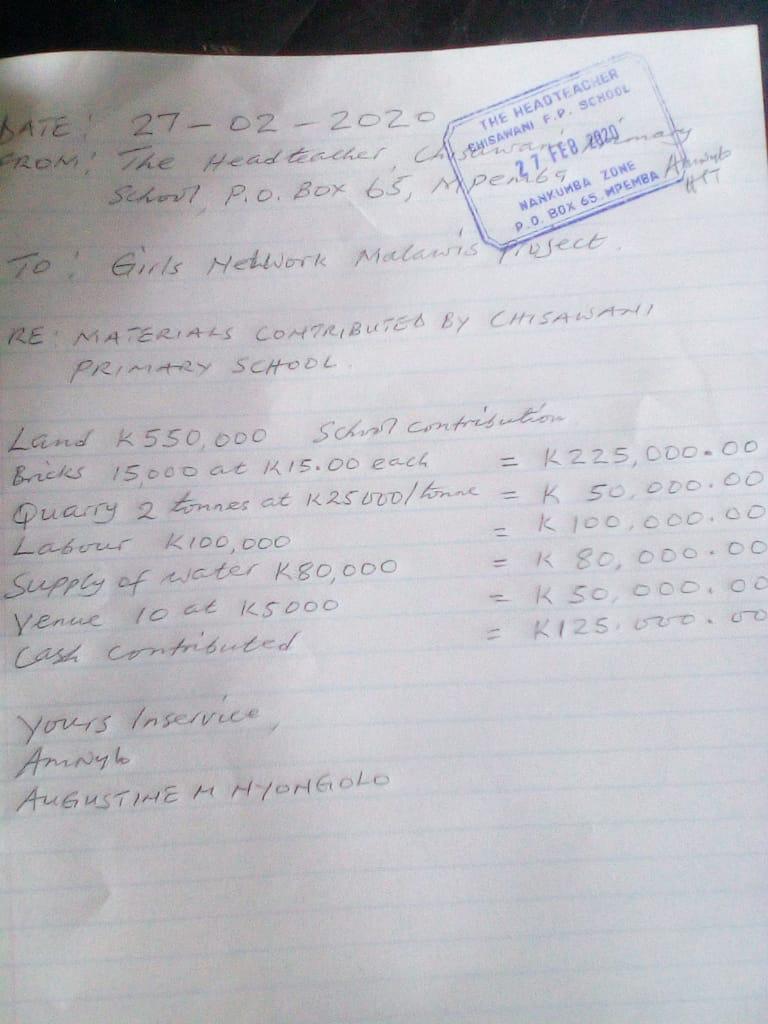 DATE: 27-02-2020
FROM: The Headteacher, Chisawani Primary
School, P.O. BOX 65, Mpemba
THE HEADTEACHER
CHISAWANI F.P. SCHOOL
27 FEB 2020
NANKUMBA ZONE
P.O. BOX 65, MPEMBA
HT
TO: Girls Network Malawis Project.
RE: MATERIALS CONTRIBUTED BY CHISAWANI
PRIMARY SCHOOL.
Land K550,000 School contribution
Bricks 15,000 at K15.00 each = K225,000.00
Quarry 2 tonnes at K25000/tonne = K 50,000.00
Labour K100,000 = K 100,000.00
Supply of water K80,000 = K 80,000.00
Venue 10 at K5000 = K 50,000.00
Cash contributed = K125.000.00
Yours Inservice,
AUGUSTINE M NYONGOLO